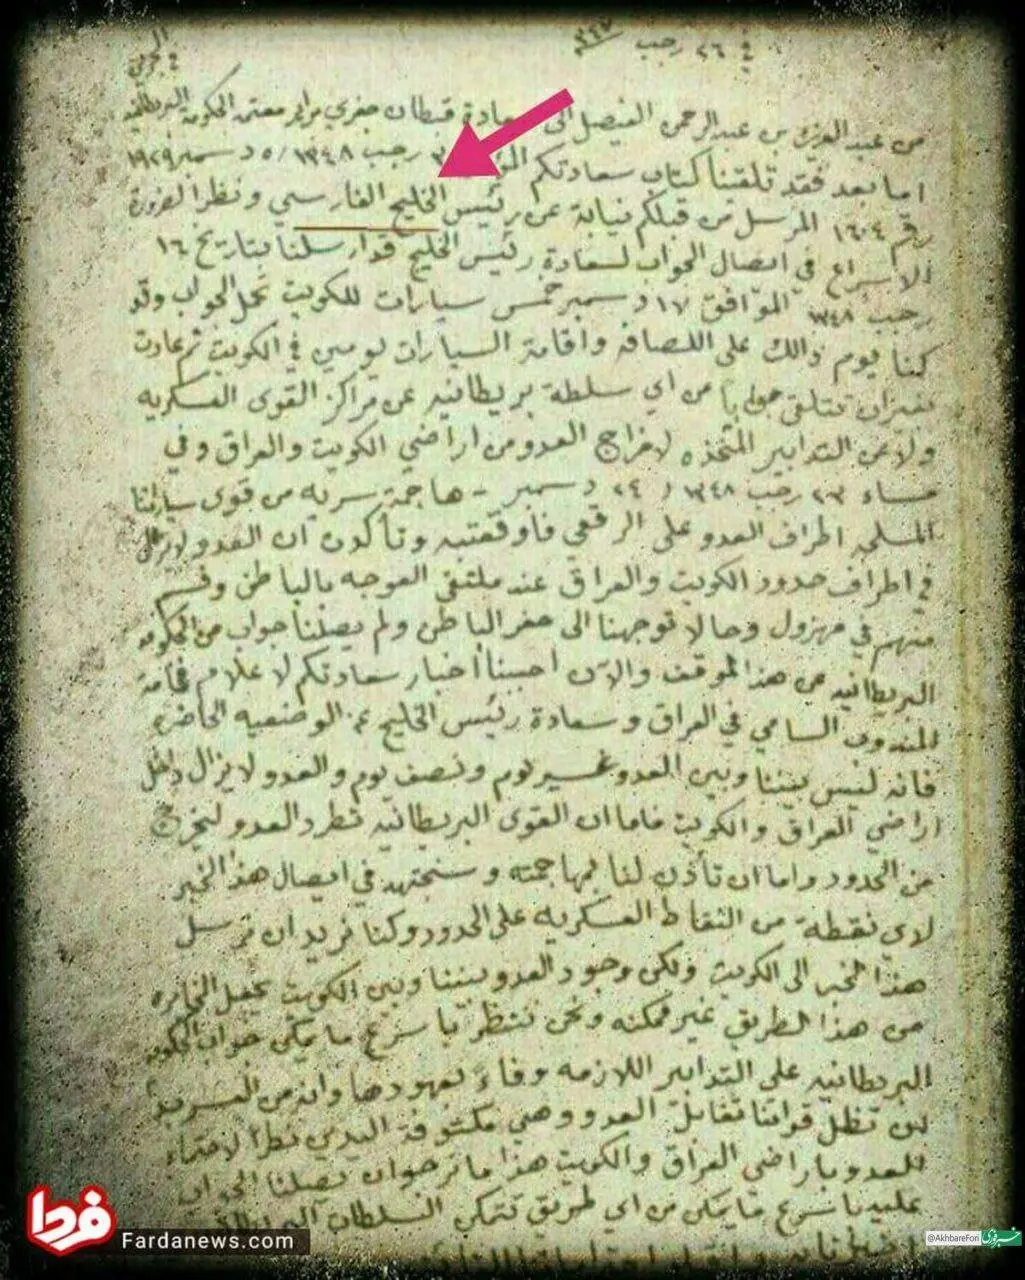 في ٢٦ رجب
من عبد العزيز بن عبد الرحمن الفيصل الى سعادة قبطان معتمد الحكومة البريطانيه
اما بعد فقد تلقينا كتاب سعادتكم رجب ١٣٤٨ / ٥ دسمبر ١٩٢٩
رقم ١٦٠٤ المرسل من قبلكم نيابة عن رئيس الخليج الفارسي ونظرا لضرورة
الاسراع في ايصال الجواب لسعادة رئيس الخليج قد ارسلنا بتاريخ ١٦
رجب ١٣٤٨ الموافق ١٧ دسمبر خمس سيارات للكويت تحمل الجواب وقد
كنا يوم ذالك على اللصافه واقامة السيارات يومين في الكويت ثم عادت
بغير ان نتلقى جوابا من اي سلطة بريطانيه عن مراكز القوى العسكريه
ولا عن التدابير المتخذه لاخراج العدو من اراضي الكويت والعراق وفي
مساء ٢٣ رجب ١٣٤٨ / ٢٤ دسمبر - هاجمة سريه من قوى سياراتنا
المسلحه اطراف العدو على الرقعي فاوقعتبه وتأكدن ان العدو لا يزال
في اطراف حدود الكويت والعراق عند ملتقى العوجه بالباطن وقسم
منهم في مهزول وحالا توجهنا الى حفر الباطن ولم يصلنا جواب من الحكومه
البريطانيه عن هذا الموقف والآن احببنا اخبار سعادتكم لاعلام فخامة
المندوب السامي في العراق وسعادة رئيس الخليج عن الوضعيه الحاضره
فانه ليس بيننا وبين العدو غير يوم ونصف يوم والعدو لا يزال داخل
اراضي العراق والكويت فاما ان القوى البريطانيه تطرد العدو ليخرج
من الحدود واما ان تأذن لنا بمهاجمته وسنجتهد في ايصال هذا الخبر
لاي نقطة من النقاط العسكريه على الحدود وكنا نريد ان نرسل
هذا الخبر الى الكويت ولكن وجود العدو بيننا وبين الكويت تجعل المخابره
من هذا الطريق غير ممكنه ونحن ننتظر باسرع ما يمكن جواب الحكومه
البريطانيه على التدابير اللازمه وفاءً بعهودها
لان تظل قواتنا تقابل العدو وهي مكتوفة اليدي نظرا لاحتماء
العدو باراضي العراق والكويت هذا ما نرجوا ان يصلنا الجواب
عليه باسرع ما يمكن من اي طريق تتمكن السلطات
فردا
Fardanews.com
@AkhbareFori
خبرفوری